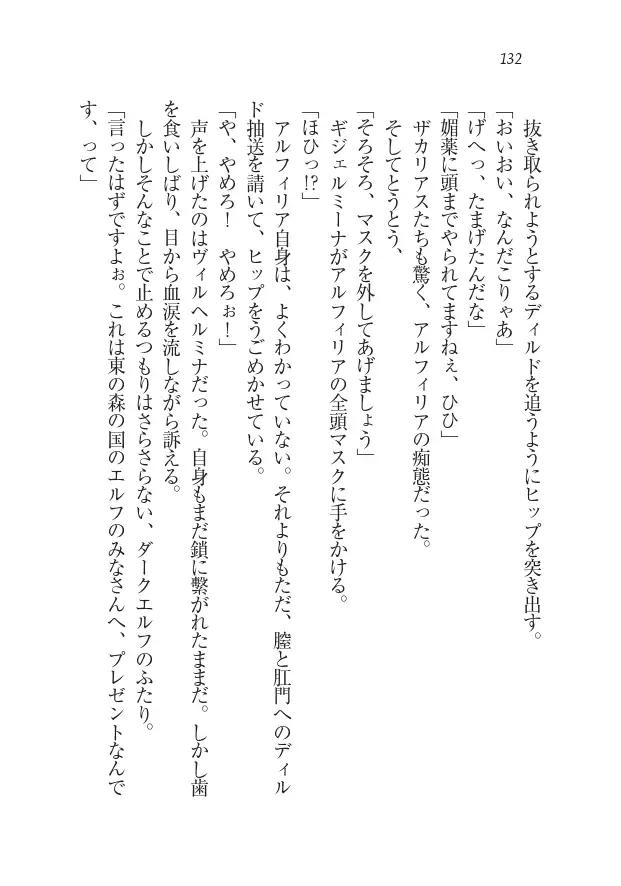 132
抜き取られようとするディルドを追うようにヒップを突き出す。
「おいおい、なんだこりゃあ」
「げへっ、たまげたんだな」
「媚薬に頭までやられてますねぇ、ひひ」
ザカリアスたちも驚く、アルフィリアの痴態だった。
そしてとうとう、
「そろそろ、マスクを外してあげましょう」
ギジェルミーナがアルフィリアの全頭マスクに手をかける。
「ほひっ!?」
アルフィリア自身は、よくわかっていない。それよりもただ、膣と肛門へのディル
ド抽送を請いて、ヒップをうごめかせている。
「や、やめろ！　やめろぉ！」
声を上げたのはヴィルヘルミナだった。自身もまだ鎖に繋がれたままだ。しかし歯
を食いしばり、目から血涙を流しながら訴える。
しかしそんなことで止めるつもりはさらさらない、ダークエルフのふたり。
「言ったはずですよぉ。これは東の森の国のエルフのみなさんへ、プレゼントなんで
す、って」